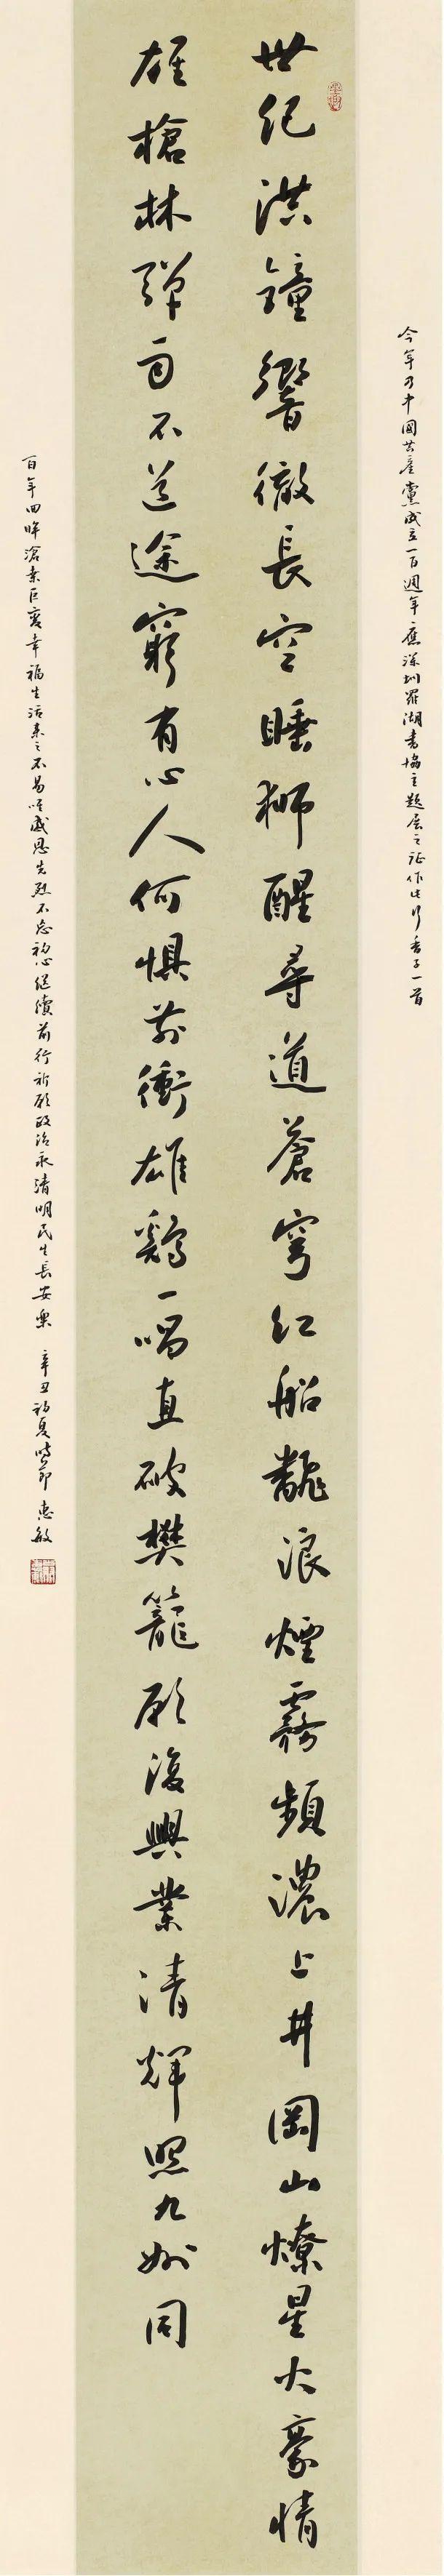 今年乃中國共產黨成立一百週年應深圳羅湖書協主題展之征作此行香子一首
世紀洪鐘響徹長空睡獅醒尋道蒼穹紅船翻浪煙霧頻濃上井岡山燎星火豪情
雄槍林彈雨不道途窮有心人何懼前衝雄鷄一唱直破樊籠願復興業清輝照九州同
百年回眸滄桑巨變幸福生活來之不易唯感恩先烈不忘初心繼續前行祈願政治永清明民生長安樂 辛丑初夏時節 惠敏